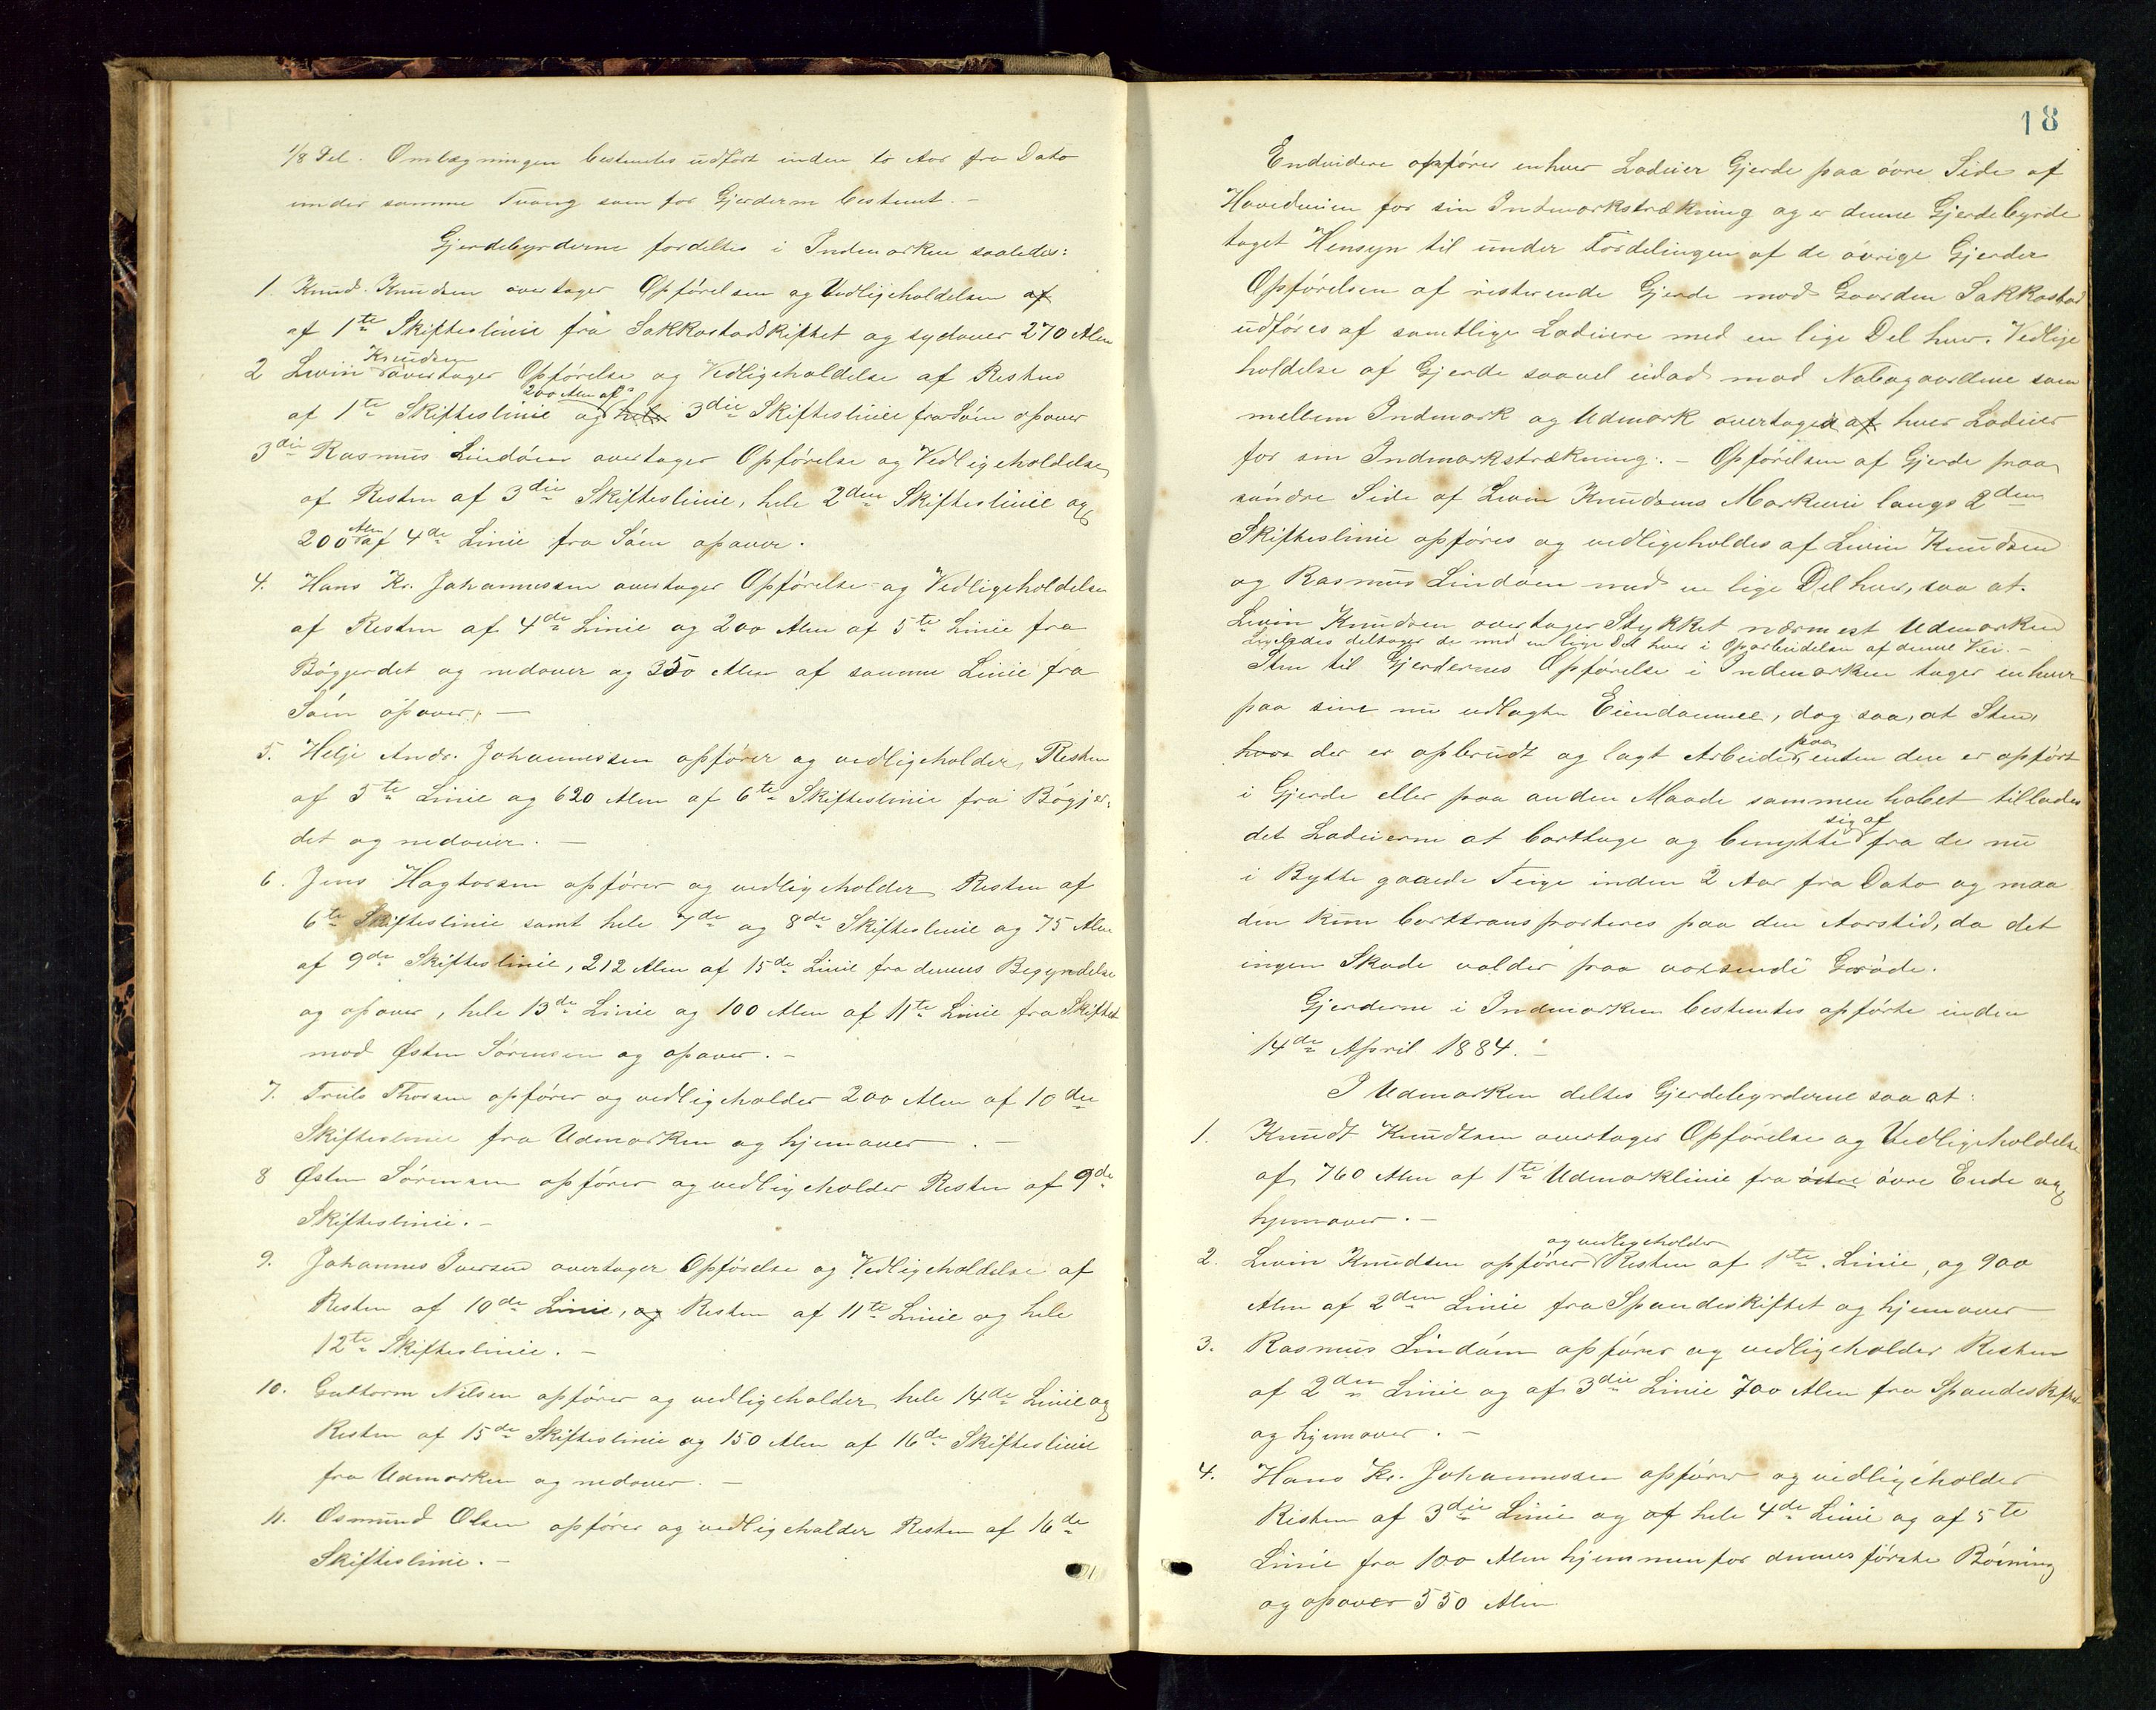 1/8 Del. Omlægningen bestemtes udført inden to Aar fra Dato
under samme Tvang som for Gjerderne bestemt. -
Gjerdebyrderne fordeltes i Indmarken saaledes:
1. Knud Knudsen overtager Opførelsen og Vedligeholdelsen af
af 1te Skifteslinie fra Sakkastadskiftet og sydover 270 Alen
Knudsen
2 Lwin overtager Opførelse og Vedligeholdelse af Resten
200 Alen af
af 1te Skifteslinie og hele 3die Skifteslinie fra Søen opover
3die Rasmus Lindøen overtager Opførelse og Vedligeholdelse
af Resten af 3die Skifteslinie, hele 2den Skifteslinie og
Alen
200 af 4de Linie fra Søen opover.
4. Hans Kr. Johannessen overtager Opførelse og Vedligeholdelse
af Resten af 4de Linie og 200 Alen af 5te Linie fra
Bøgjerdet og nedover og 350 Alen af samme Linie fra
Søen opover. -
5. Helje Andr. Johannessen opfører og vedligeholder Resten
af 5te Linie og 620 Alen af 6te Skifteslinie fra Bøgjer-
det og nedover. -
6. Jens Hagtorsen opfører og vedligeholder Resten af
6te Skifteslinie samt hele 7de og 8de Skifteslinie og 75 Alen
af 9de Skifteslinie, 212 Alen af 15de Linie fra dennes Begyndelse
og opover, hele 13de Linie og 100 Alen af 11te Linie fra Skiftet
mod Østen Sørensen og opover. -
7. Truls Thorsen opfører og vedligeholder 200 Alen af 10de
Skifteslinie fra Udmarken og hjemover. -
8 Østen Sørensen opfører og vedligeholder Resten af 9de
Skifteslinie. -
9. Johannes Iversen overtager Opførelse og Vedligeholdelse af
Resten af 10de Linie, og Resten af 11te Linie og hele
12te Skifteslinie. -
10. Guttorm Nilsen opfører og vedligeholder hele 14de Linie og
Resten af 15de Skifteslinie og 150 Alen af 16de Skifteslinie
fra Udmarken og nedover. -
11. Osmund Olsen opfører og vedligeholder Resten af 16de
Skifteslinie. -
18
Endvidere opfører enhver Lodeier Gjerde paa øvre Side af
Hovedveien for sin Indmarkstrækning og er denne Gjerdebyrde
taget Hensyn til under Fordelingen af de øvrige Gjerder
Opførelsen af resterende Gjerde mod Gaarden Sakkastad
udføres af samtlige Lodeiere med en lige Del hver. Vedlige
holdelse af Gjerde saavel udad mod Nabogaardene som
mellem Indmark og Udmark overtages af hver Lodeier
for sin Indmarkstrækning. - Opførelsen af Gjerde paa
søndre Side af Lwin Knudsens Markevei langs 2den
Skifteslinie opføres og vedligeholdes af Lwin Knudsen
og Rasmus Lindøen med en lige Del hver, saa at
Lwin Knudsen overtager Stykket nærmest Udmarken
Ligeledes deltager de med en lige Del hver i Oparbeidelsen af denne Vei. -
Sten til Gjerdernes Opførelse i Indmarken tager enhver
paa sine nu udlagte Eiendomme, dog saa, at Sten,
paa
hvor der er opbrudt og lagt Arbeide, enten den er opført
i Gjerde eller paa anden Maade sammenhobet tillades
sig af
det Lodeierne at borttage og benytte fra de nu
i Bytte gaaede Teige inden 2 Aar fra Dato og maa
den kun borttransporteres paa den Aarstid, da det
ingen Skade volder paa voxsende Grøde.
Gjerderne i Indmarken bestemtes opførte inden
14de April 1884. -
I Udmarken deltes Gjerdebyrderne saa at:
1. Knudt Knudtsen overtager Opførelse og Vedligeholdelse
af 760 Alen af 1te Udmarklinie fra østre øvre Ende og
hjemover. -
og vedligeholder
2. Lwin Knudsen opfører Resten af 1te Linie, og 900
Alen af 2den Linie fra Spandeskiftet og hjemover
3. Rasmus Lindøen opfører og vedligeholder Resten
af 2den Linie og af 3die Linie 700 Alen fra Spandeskiftet
og hjemover. -
4. Hans Kr. Johannessen opfører og vedligeholder
Resten af 3die Linie og af hele 4de Linie og af 5te
Linie fra 100 Alen hjemmenfor dennes første Bøining
og opover 550 Alen